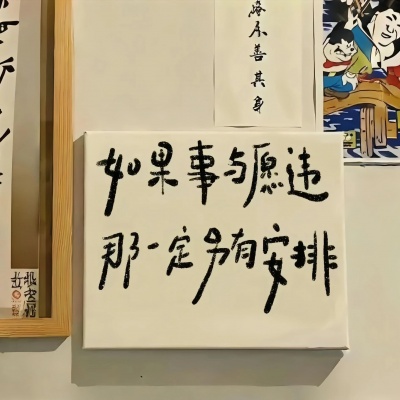 如果事与愿违
那一定另有安排
善其身